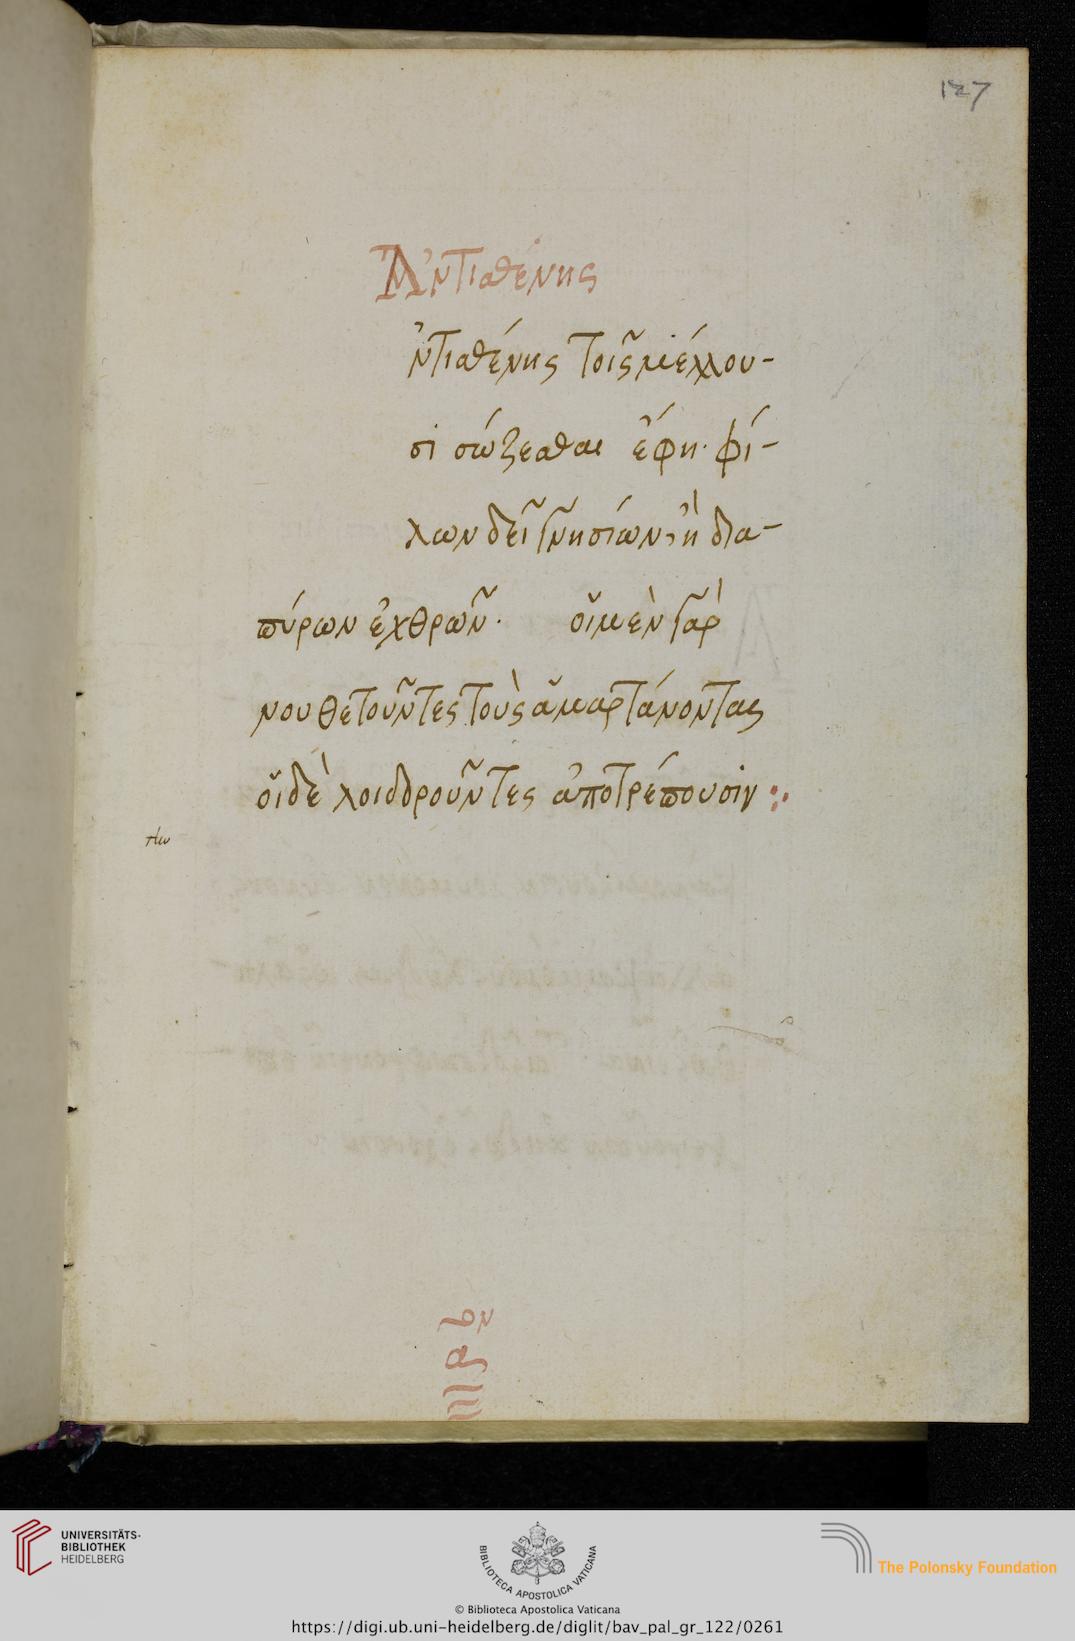 127
Ἀντισθένης
ντισθένης τοῖς μέλλου-
σι σώζεσθαι ἔφη· φί-
λων δεῖ γνησίων, ἢ δια-
πύρων ἐχθρῶν· οἱ μὲν γὰρ
νουθετοῦντες τοὺς ἁμαρτάνοντας
οἱ δὲ λοιδδροῦντες ἀποτρέπουσιν :·
UNIVERSITÄTS-
BIBLIOTHEK
HEIDELBERG
BIBLIOTECA APOSTOLICA VATICANA
The Polonsky Foundation
© Biblioteca Apostolica Vaticana
https://digi.ub.uni-heidelberg.de/diglit/bav_pal_gr_122/0261